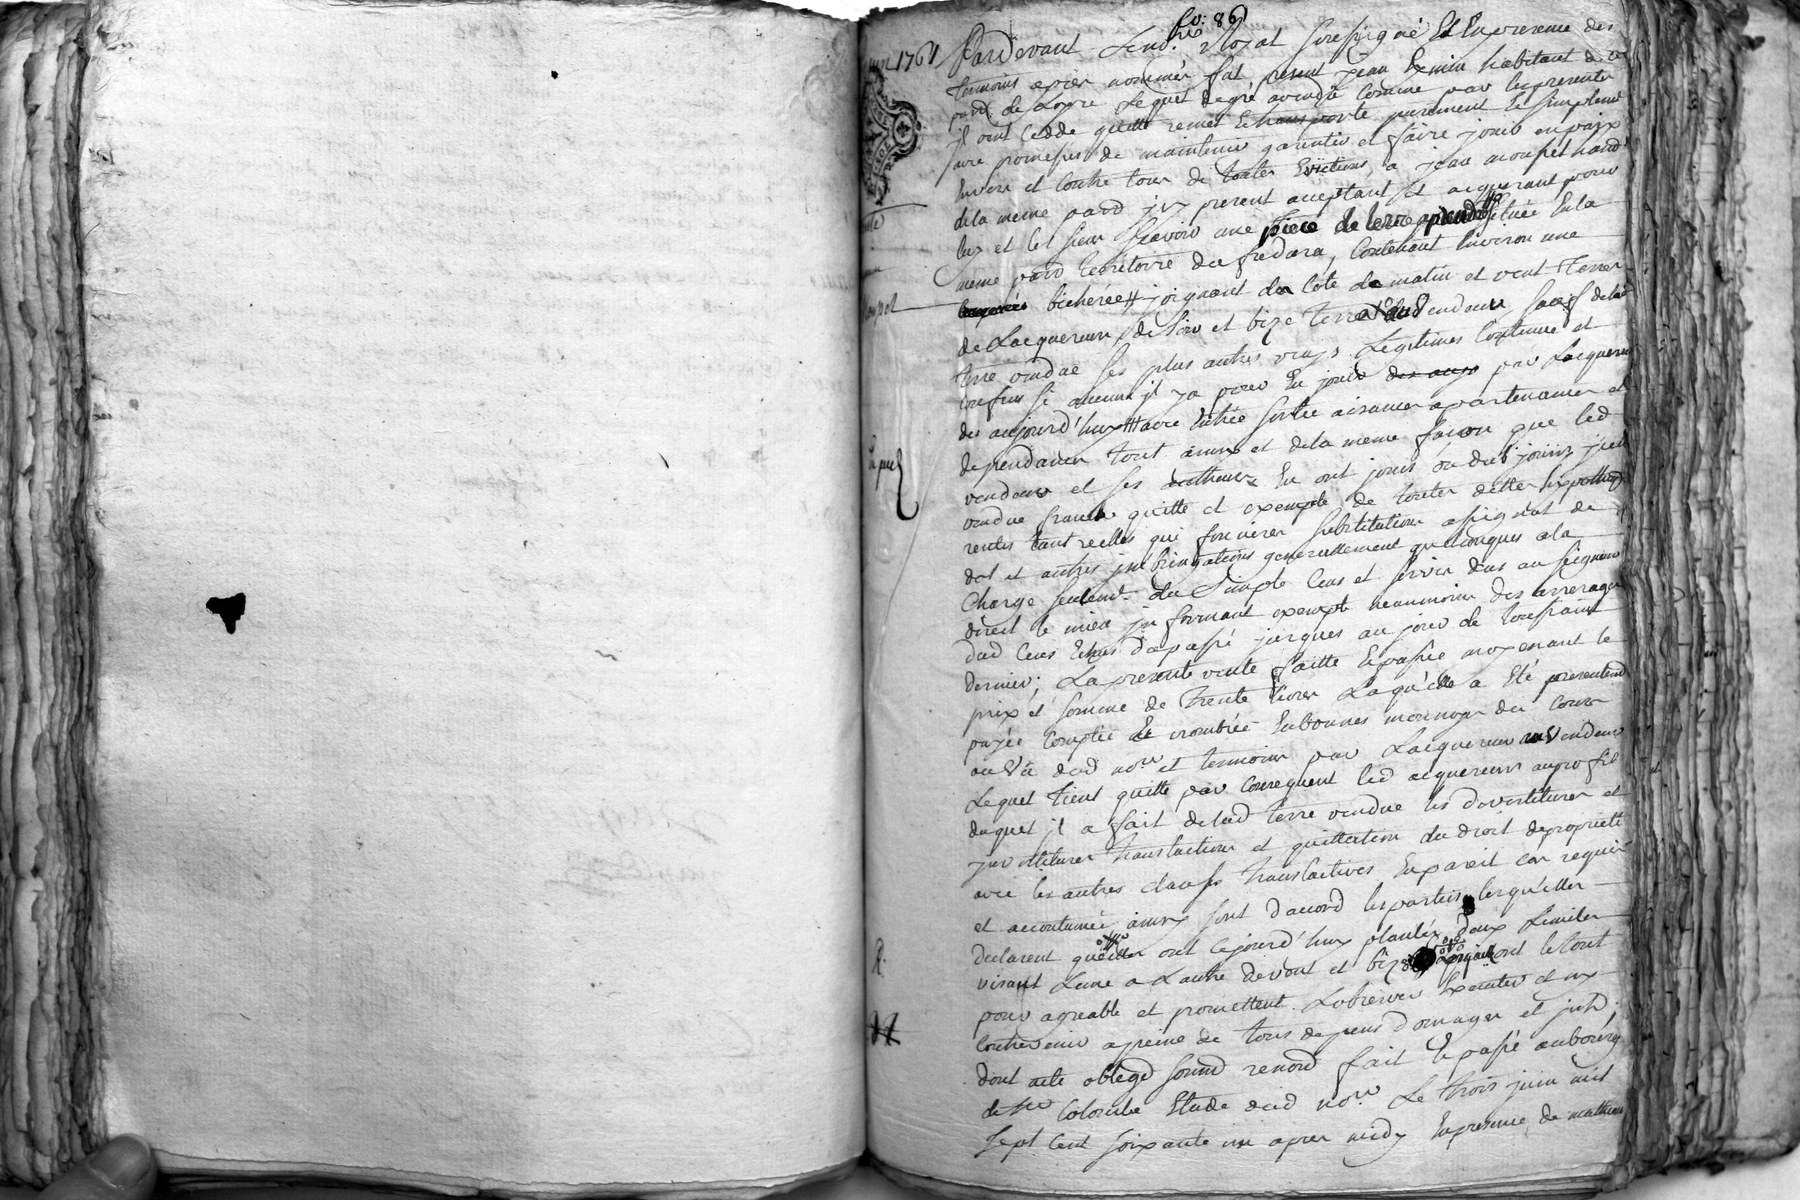 fo: 86
juin 1761
Pardevant Lend. Noʳᵉ Royal soussigné Et En presence des
temoins apres nommés fut present jean habitant de la
parr de Logre Lequel de gré a vendu comme par ces presentes
il vend Cedde quitte remet Et transporte purement Et simplemt
avec promesses de maintenir garentir et faire jouir en paix
Envers et Contre tous de toutes Evictions, a jean mouspet
de la meme parr icy present acceptant Et acquerant pour
luy et les siens Scavoir une piece de terre située En la
meme parr territoire du fredara, Contenant Environ une
bicherée joignant du coté de matin et vent Terres
de Lacquereur, de soir et bize Terre dud vendeur, sauf de lad
terre vendue ses plus autres vrays Legitimes Contenue et
confins si aucuns il y a pour En jouir par Lacquereur
des aujourd'huy avec Entrée sortie aisances apartenances et
dependances tout ainsy et de la meme façon que led
vendeur et ses autheurs En ont jouis ou dub jouir, icelle
vendue franche quitte et exempte de toutes dettes hypotheq
rentes tant reelles que foncieres substitution assignat de
dot et autres imbringations generallement quelconques a la
Charge seulemt du Simple Cens et servis dus au seigneur
direct le mieux in formant exempte neanmoins des arrerages
dud Cens Echus du passé jusques au jour de toussaint
dernier; La presente vente faitte Et passée moyenant le
prix et somme de trente livres Laquelle a Eté presentemt
payée Comptée Et nombrée En bonnes monnoyes du Cours
au Vû dud noʳᵉ et temoins par Lacquereur au Vendeur
Lequel tient quitte par Consequent led acquereur au profit
duquel il a fait de lad terre vendue les devestitures et
investitures translations et quittation du droit de proprieté
avec les autres clauses translatives En pareil cas requis
et accoutumées ainsy sont d'accord les parties lesquelles
declarent quelles ont cejourd'huy plantés deux Limites
visant Lune a Lautre devent et bize ont le tout
pour agreable et promettent Lobserver Executer et ny
Contrevenir a peine de tous depens domages et inth;
dont acte obligd soumd renond fait Et passé au bourg
de Ste Colombe Etude dud noʳᵉ Le trois juin mil
sept cent soixante un apres midy En presence de mathieu